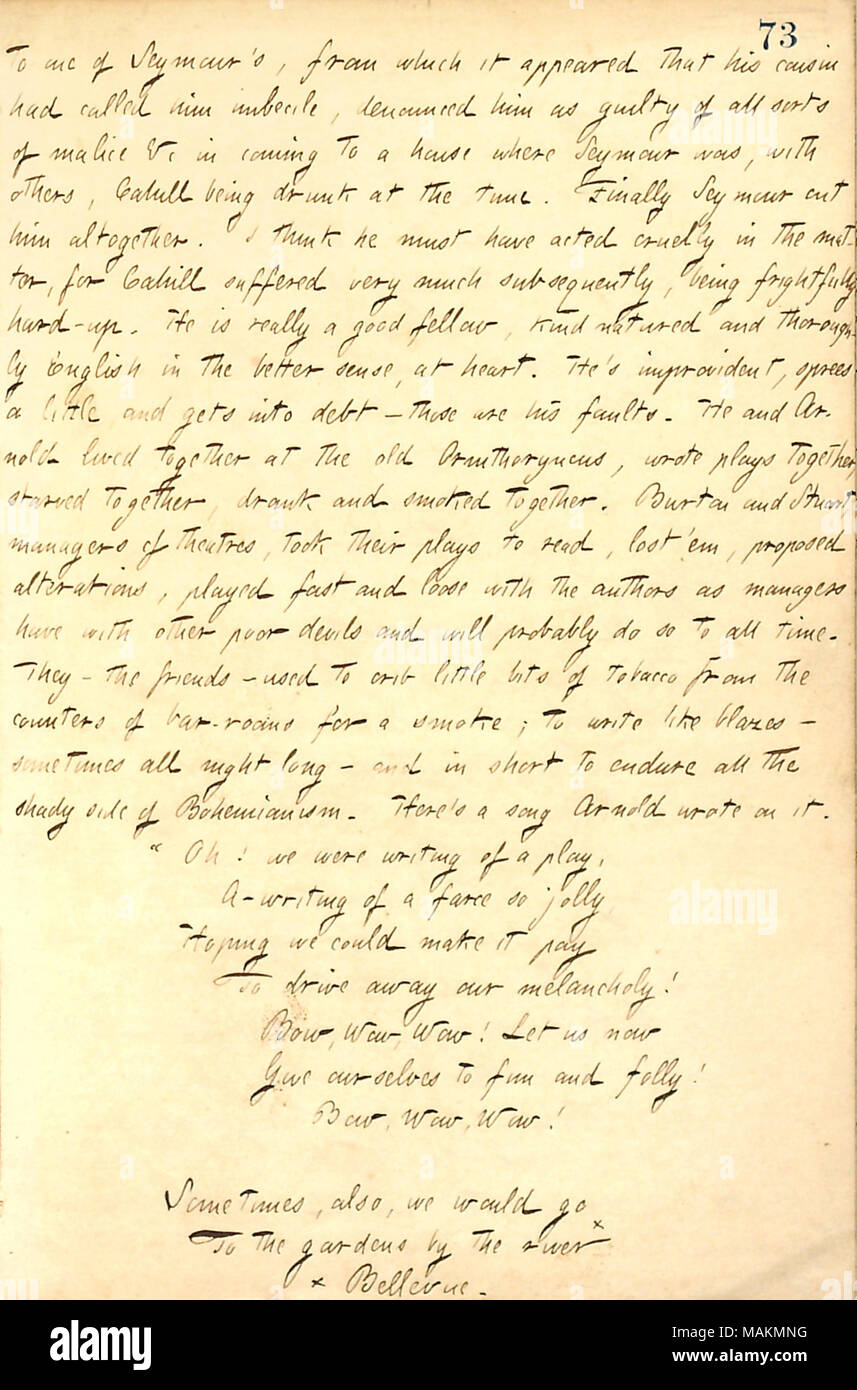 73
to one of Seymour's, from which it appeared that his cousin
had called him imbecile, denounced him as guilty of all sorts
of malice &c in coming to a house where Seymour was, with
others, Cahill being drunk at the time. Finally Seymour cut
him altogether. I think he must have acted cruelly in the mat-
ter, for Cahill suffered very much subsequently, being frightfully
hard-up. He is really a good fellow, kind natured and thorough-
ly English in the better sense, at heart. He's improvident, sprees
a little and gets into debt — those are his faults. He and Ar-
nold lived together at the old Ornithoryncus, wrote plays together,
starved together, drank and smoked together. Burton and Stuart
managers of theatres, took their plays to read, lost 'em, proposed
alterations, played fast and loose with the authors as managers
have with other poor devils and will probably do so to all time.
They – the friends – used to crib little bits of tobacco from the
counters of bar-rooms for a smoke; to write like blazes —
sometimes all night long – and in short to endure all the
shady side of Bohemianism. Here's a song Arnold wrote on it.
" Oh! we were writing of a play,
A-writing of a farce so jolly
Hoping we could make it pay
To drive away our melancholy!
Bow, Wow, Wow! Let us now
Give ourselves to fun and folly!
Bow, Wow, Wow!
Sometimes, also, we would go
To the gardens by the river x
x Bellevue.
alamy
Image ID: MAKMNG
www.alamy.com